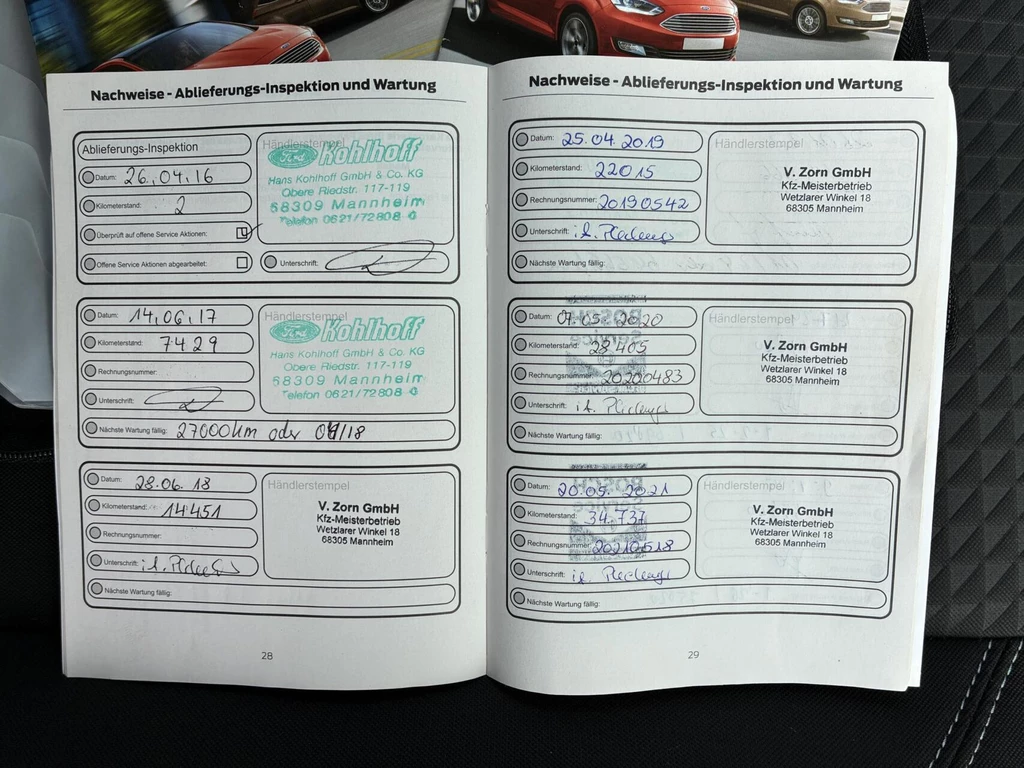 Nachweise - Ablieferungs-Inspektion und Wartung
Ablieferungs-Inspektion
Datum: 26.04.16
Kilometerstand: 2
Überprüft auf offene Service Aktionen:
Offene Service Aktionen abgearbeitet:
Händlerstempel
Ford Kohlhoff
Hans Kohlhoff GmbH & Co. KG
Obere Riedstr. 117-119
68309 Mannheim
Telefon 0621/72808-0
Unterschrift:
Datum: 14.06.17
Kilometerstand: 7429
Rechnungsnummer:
Unterschrift:
Händlerstempel
Ford Kohlhoff
Hans Kohlhoff GmbH & Co. KG
Obere Riedstr. 117-119
68309 Mannheim
Telefon 0621/72808-0
Nächste Wartung fällig: 27000km oder 04/18
Datum: 28.06.18
Kilometerstand: 14451
Rechnungsnummer:
Unterschrift:
Händlerstempel
V. Zorn GmbH
Kfz-Meisterbetrieb
Wetzlarer Winkel 18
68305 Mannheim
Nächste Wartung fällig:
28
Nachweise - Ablieferungs-Inspektion und Wartung
Datum: 25.04.2019
Kilometerstand: 22015
Rechnungsnummer: 20190542
Unterschrift:
Händlerstempel
V. Zorn GmbH
Kfz-Meisterbetrieb
Wetzlarer Winkel 18
68305 Mannheim
Nächste Wartung fällig:
Datum: 07.05.2020
Kilometerstand: 28.405
Rechnungsnummer: 20200483
Unterschrift:
Händlerstempel
V. Zorn GmbH
Kfz-Meisterbetrieb
Wetzlarer Winkel 18
68305 Mannheim
Nächste Wartung fällig:
Datum: 20.05.2021
Kilometerstand: 34.737
Rechnungsnummer: 20210518
Unterschrift:
Händlerstempel
V. Zorn GmbH
Kfz-Meisterbetrieb
Wetzlarer Winkel 18
68305 Mannheim
Nächste Wartung fällig:
29